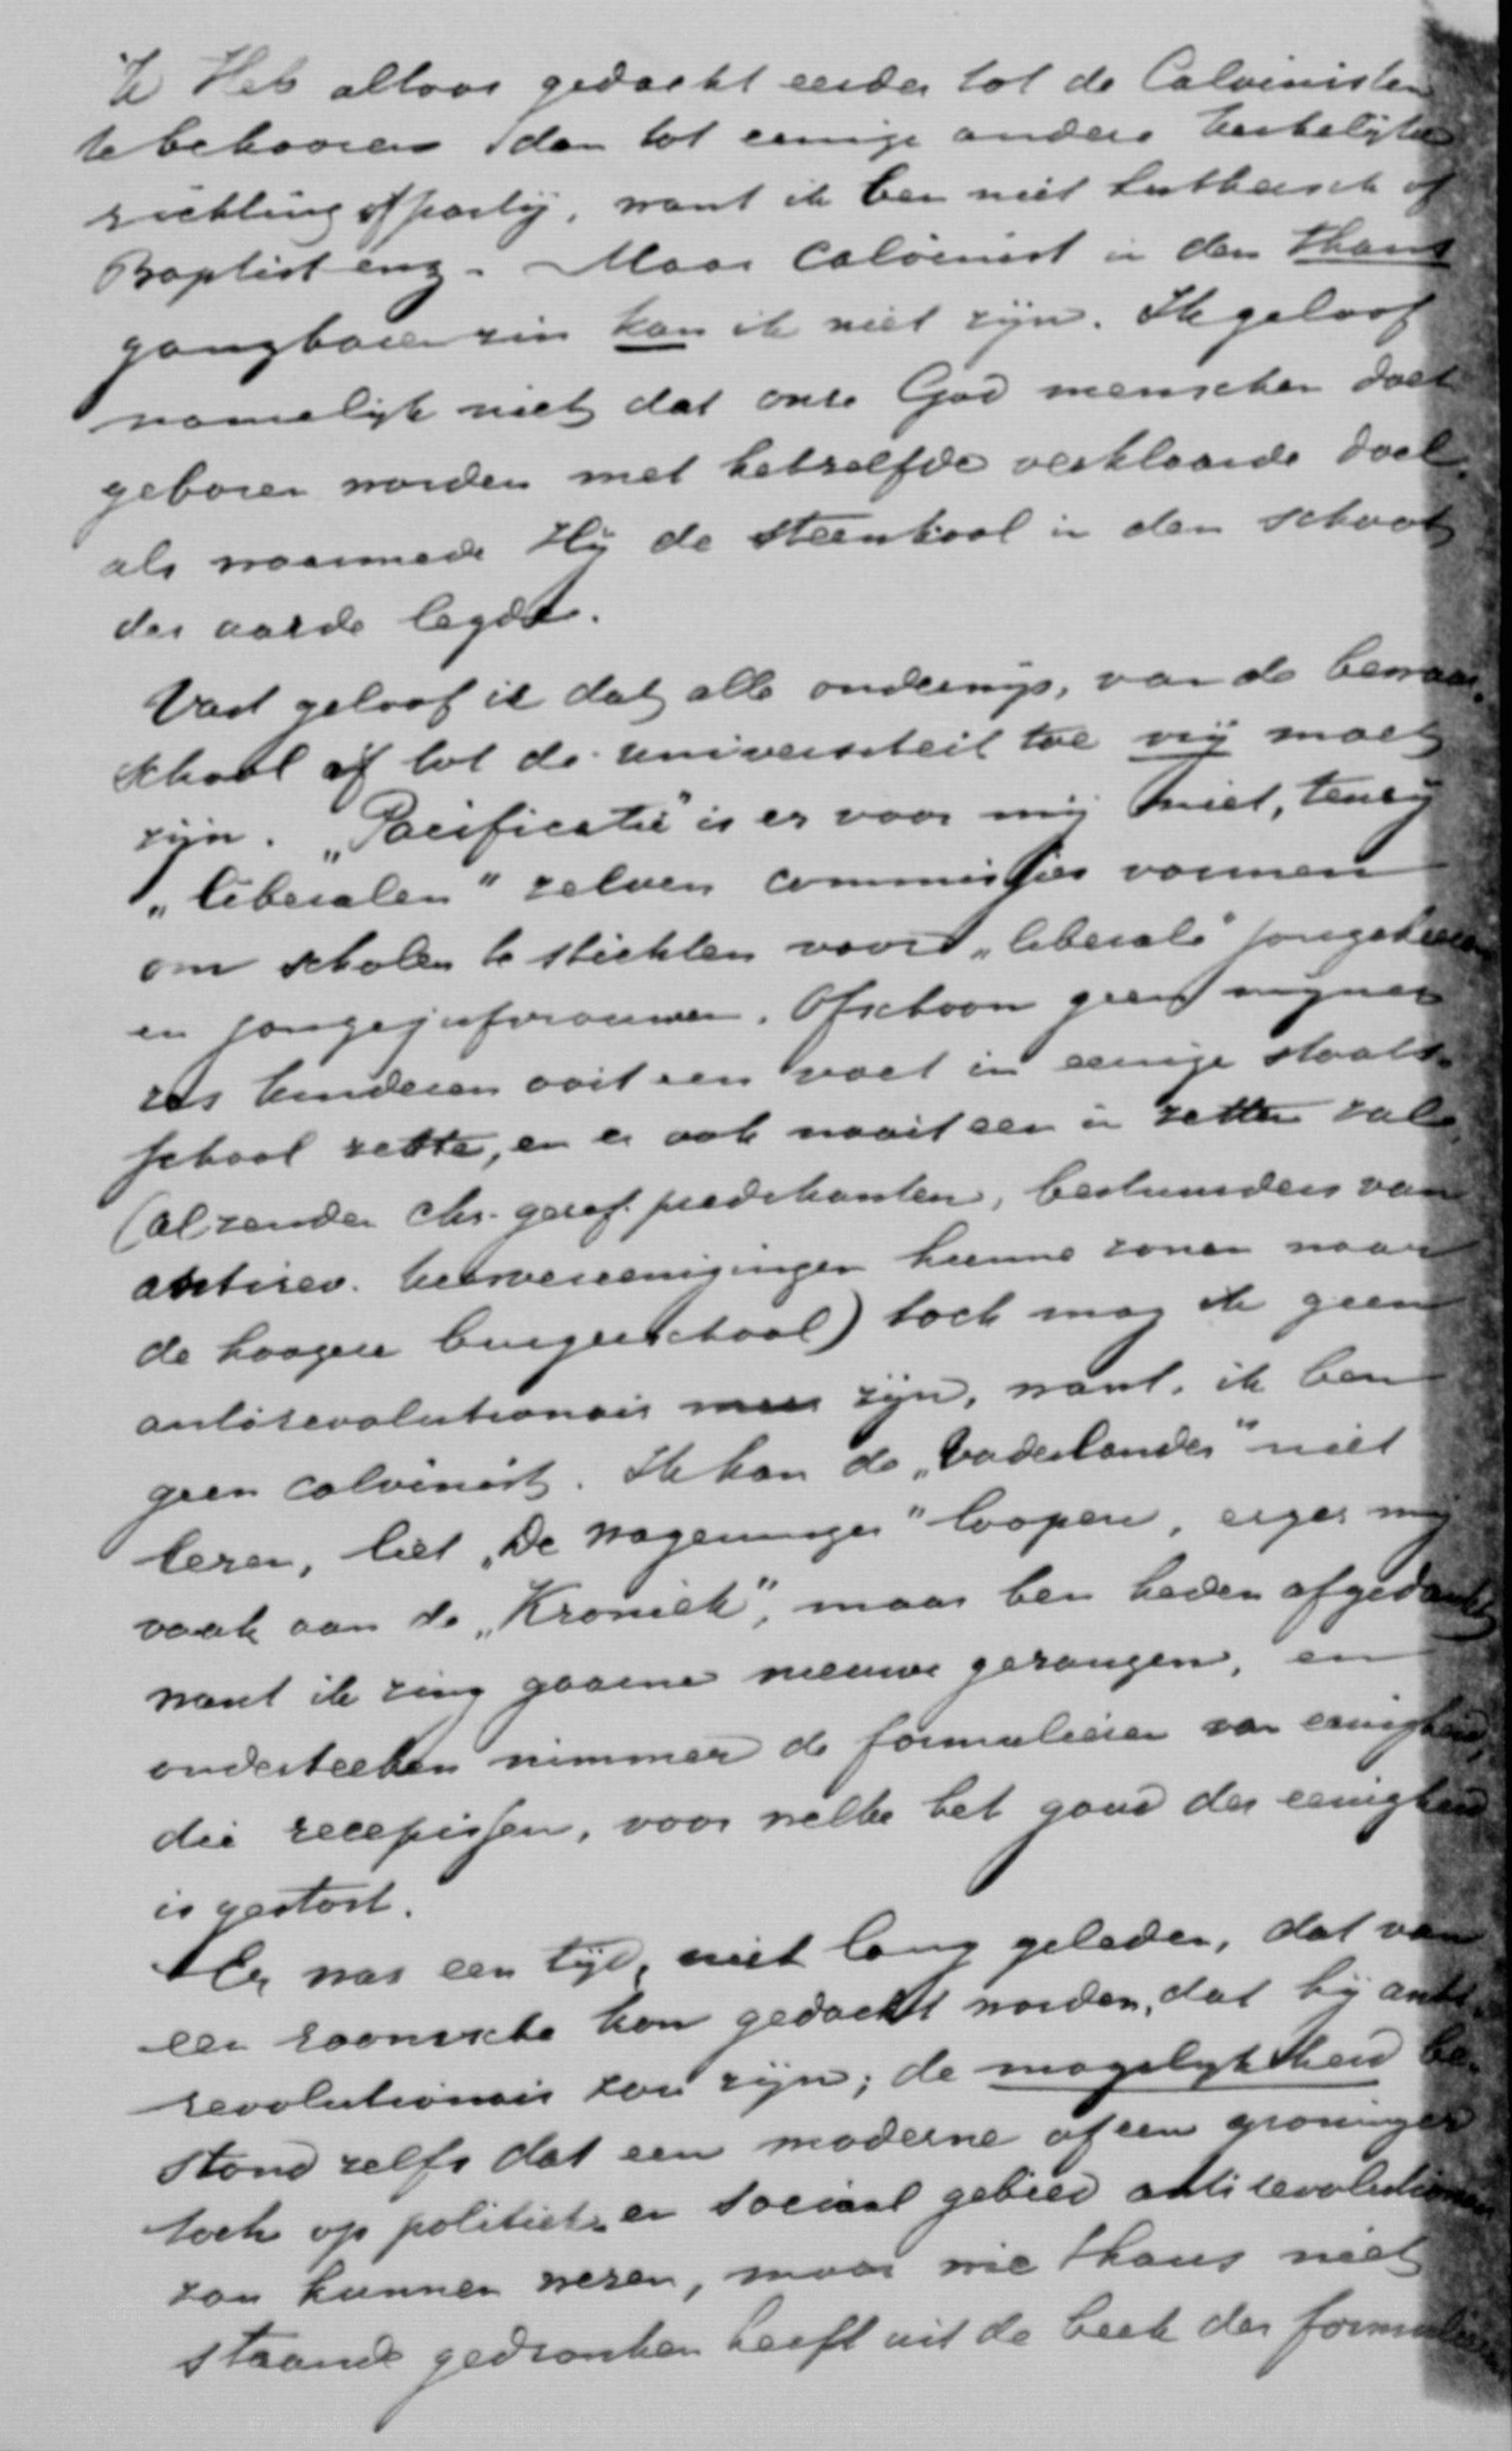 Ik Heb altoos gedacht eerder tot de Calvinisten
te behooren dan tot eenige andere kerkelijke
richting of partij, want ik ben niet Luthersch of
Baptist enz. – Maar Calvinist in den thans
gangbaren zin kan ik niet zijn. Ik geloof
namelijk niet dat onze God menschen doet
geboren worden met hetzelfde verklaarde doel
als waarmede Hij de steenkool in den schoot
der aarde legde.
Vast geloof ik dat alle onderwijs, van de bewaar-
school af tot de universiteit toe vrij moet
zijn. „Pacificatie" is er voor mij niet, tenzij
„liberalen" zelven commissies vormen
om scholen te stichten voor „liberale" jongeheeren
en jongejufvrouwen. Ofschoon geen mijner
zes kinderen ooit een voet in eenige staats-
school zette, en er ook nooit een in zetten zal,
(al zenden chr. geref. predikanten, bestuurders van
antirev. kiesvereenigingen hunne zonen naar
de hoogere burgerschool) toch mag ik geen
antirevolutionair meer zijn, want, ik ben
geen calvinist. Ik kan de „Vaderlander" niet
lezen, liet „De Wageninger" loopen, erger mij
vaak aan de „Kroniek", maar ben heden afgedankt
want ik zing gaarne nieuwe gezangen, en
onderteeken nimmer de formulieren van eenigheid,
die recepissen, voor welke het goud der eenigheid
is gestort.
Er was een tijd, niet lang geleden, dat van
een roomsche kon gedacht worden, dat hij anti-
revolutionair zou zijn; de mogelijkheid be-
stond zelfs dat een moderne of een groninger
toch op politiek en sociaal gebied antirevolutionair
zou kunnen wezen, maar wie thans niet
staande gedronken heeft uit de beek der formulieren